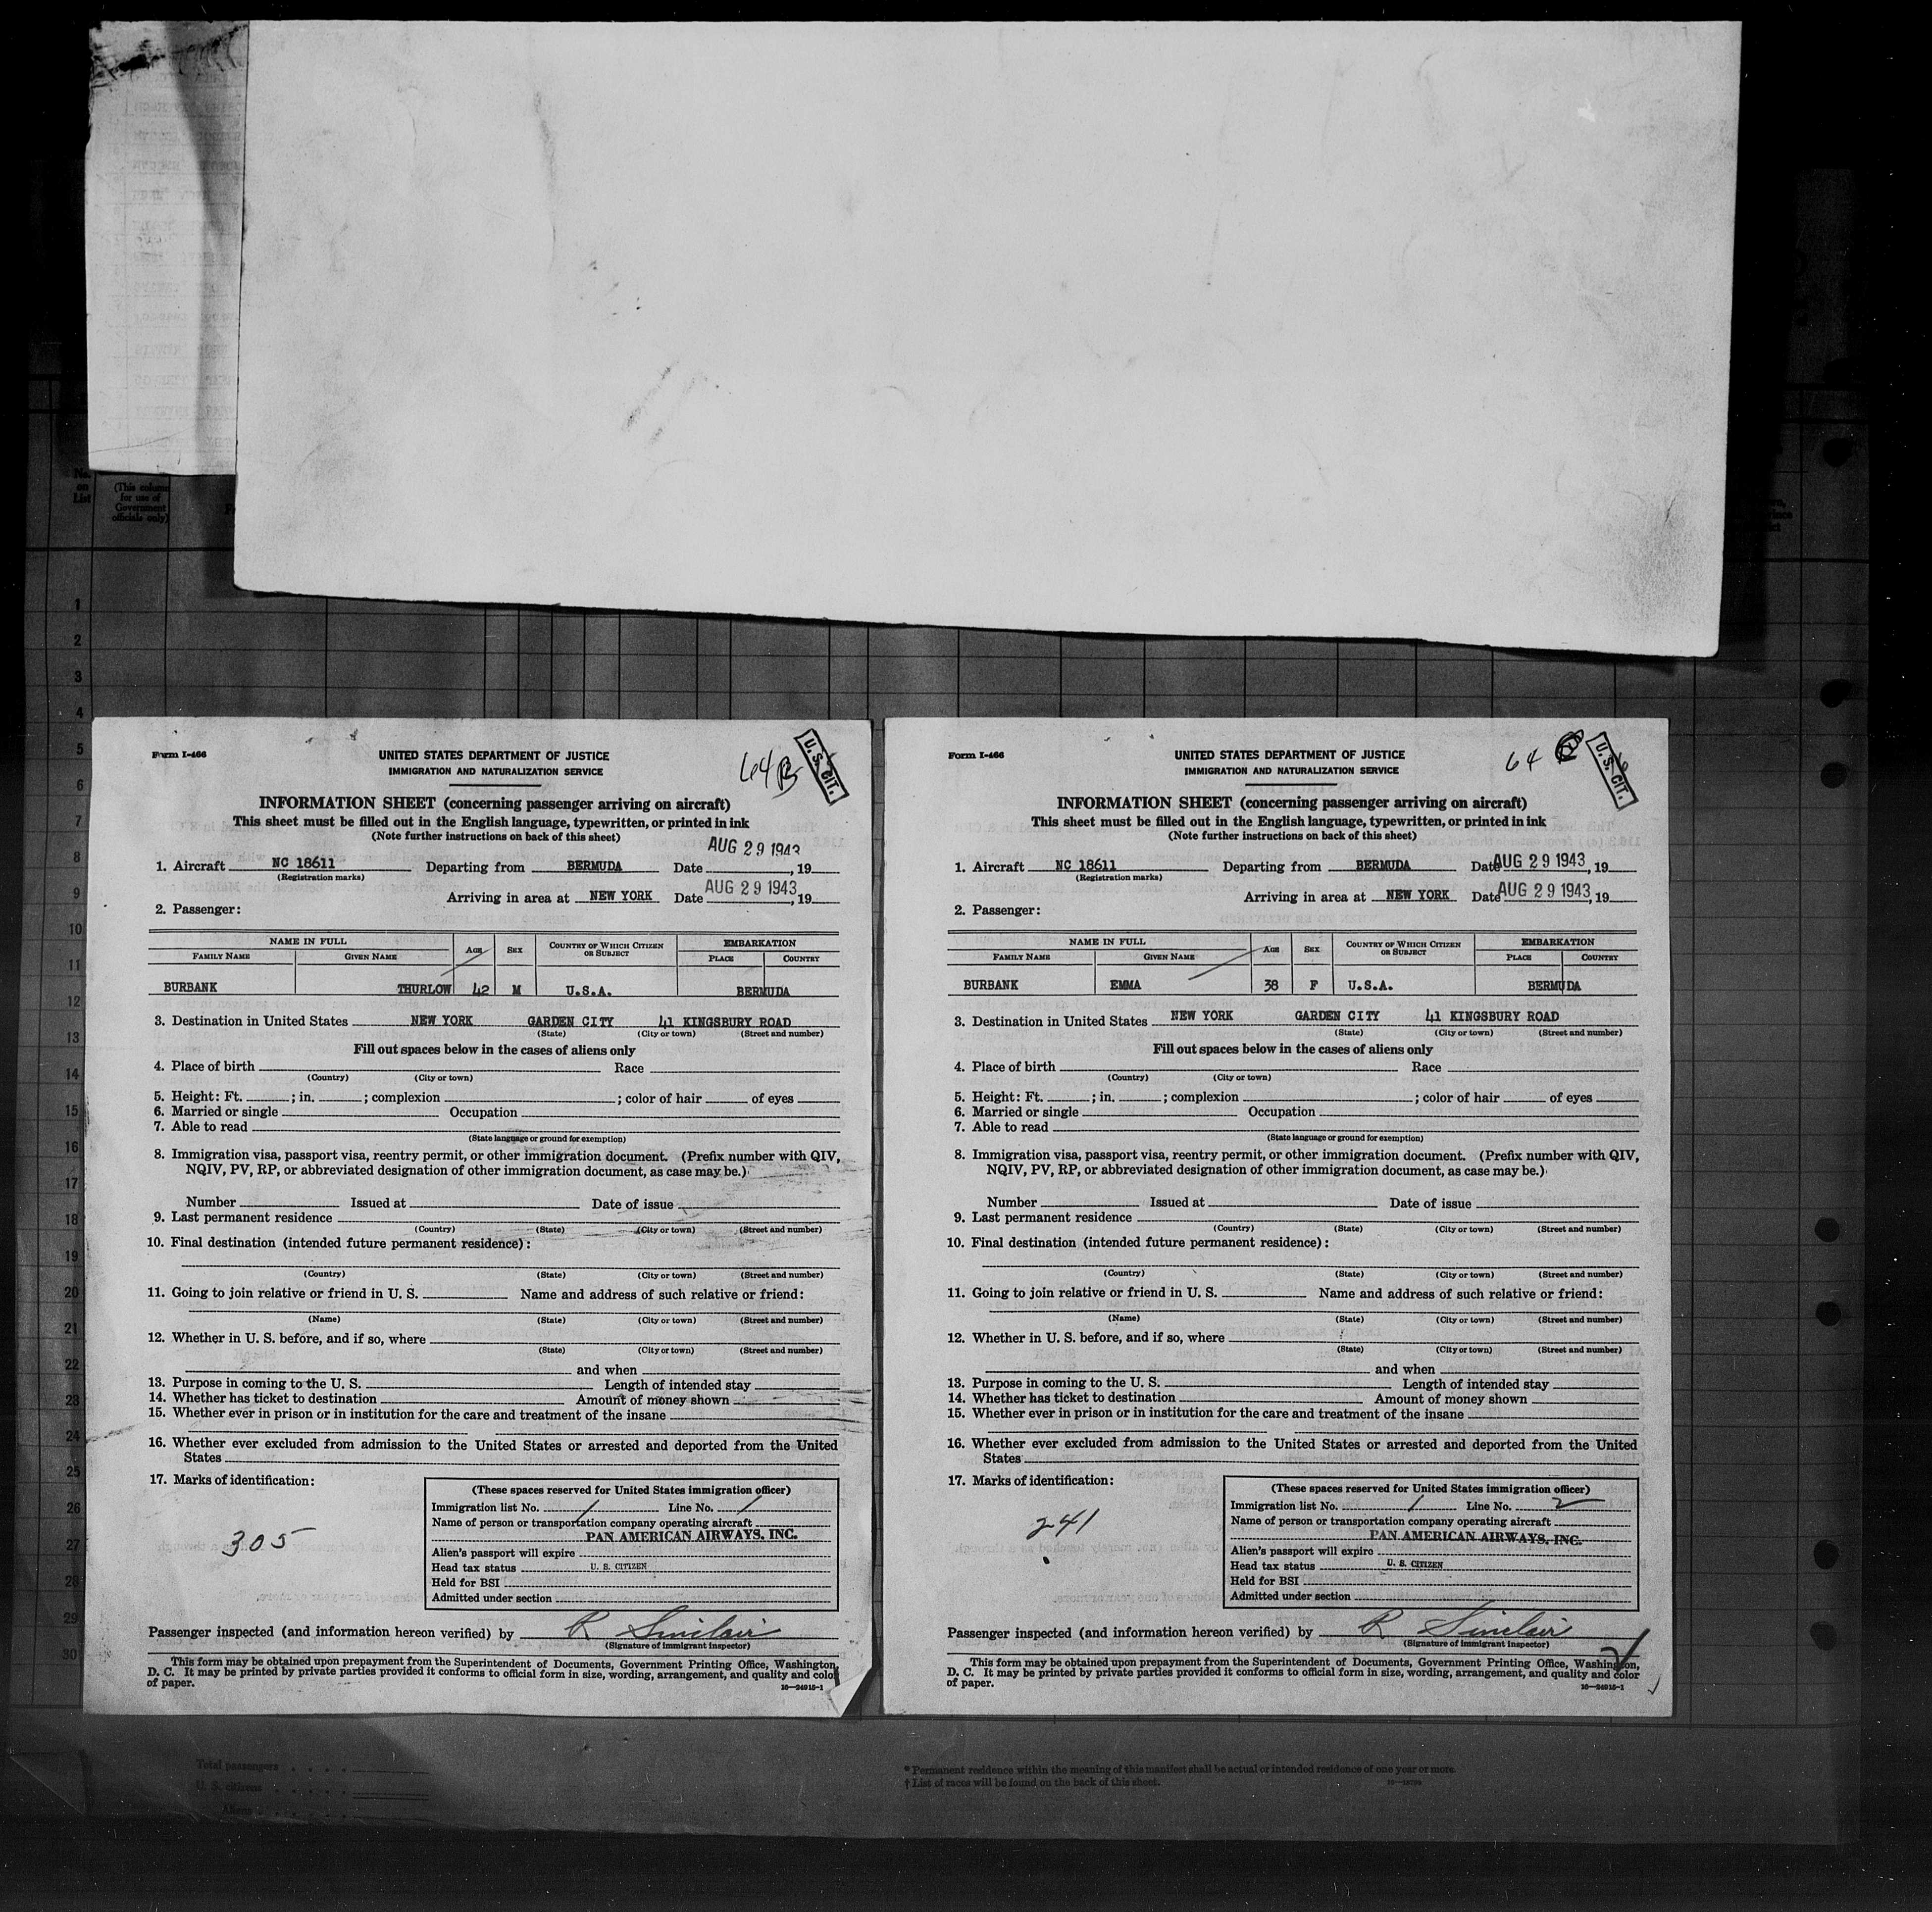 No.
on
List
(This column
for use of
Government
officials only)
1
2
3
4
5
6
7
8
9
10
11
12
13
14
15
16
17
18
19
20
21
22
23
24
25
26
27
28
29
30
Form I-466
UNITED STATES DEPARTMENT OF JUSTICE
IMMIGRATION AND NATURALIZATION SERVICE
64 B
U. S. CIT.
INFORMATION SHEET (concerning passenger arriving on aircraft)
This sheet must be filled out in the English language, typewritten, or printed in ink
(Note further instructions on back of this sheet)
AUG 29 1943
1. Aircraft NC 18611 Departing from BERMUDA Date , 19
(Registration marks)
Arriving in area at NEW YORK Date AUG 29 1943, 19
2. Passenger:
NAME IN FULL AGE SEX COUNTRY OF WHICH CITIZEN OR SUBJECT EMBARKATION
FAMILY NAME GIVEN NAME PLACE COUNTRY
BURBANK THURLOW 42 M U.S.A. BERMUDA
3. Destination in United States NEW YORK GARDEN CITY 41 KINGSBURY ROAD
(State) (City or town) (Street and number)
Fill out spaces below in the cases of aliens only
4. Place of birth Race
(Country) (City or town)
5. Height: Ft. ; in. ; complexion ; color of hair of eyes
6. Married or single Occupation
7. Able to read
(State language or ground for exemption)
8. Immigration visa, passport visa, reentry permit, or other immigration document. (Prefix number with QIV,
NQIV, PV, RP, or abbreviated designation of other immigration document, as case may be.)
Number Issued at Date of issue
9. Last permanent residence
(Country) (State) (City or town) (Street and number)
10. Final destination (intended future permanent residence):
(Country) (State) (City or town) (Street and number)
11. Going to join relative or friend in U. S. Name and address of such relative or friend:
(Name) (State) (City or town) (Street and number)
12. Whether in U. S. before, and if so, where
(State) (City or town) (Street and number)
and when
13. Purpose in coming to the U. S. Length of intended stay
14. Whether has ticket to destination Amount of money shown
15. Whether ever in prison or in institution for the care and treatment of the insane
16. Whether ever excluded from admission to the United States or arrested and deported from the United
States
17. Marks of identification:
305
(These spaces reserved for United States immigration officer)
Immigration list No. 1 Line No. 1
Name of person or transportation company operating aircraft
PAN AMERICAN AIRWAYS, INC.
Alien's passport will expire
Head tax status U. S. CITIZEN
Held for BSI
Admitted under section
Passenger inspected (and information hereon verified) by R Sinclair
(Signature of immigrant inspector)
This form may be obtained upon prepayment from the Superintendent of Documents, Government Printing Office, Washington,
D. C. It may be printed by private parties provided it conforms to official form in size, wording, arrangement, and quality and color
of paper.
16—24915-1
Form I-466
UNITED STATES DEPARTMENT OF JUSTICE
IMMIGRATION AND NATURALIZATION SERVICE
64
U. S. CIT.
INFORMATION SHEET (concerning passenger arriving on aircraft)
This sheet must be filled out in the English language, typewritten, or printed in ink
(Note further instructions on back of this sheet)
1. Aircraft NC 18611 Departing from BERMUDA Date AUG 29 1943, 19
(Registration marks)
Arriving in area at NEW YORK Date AUG 29 1943, 19
2. Passenger:
NAME IN FULL AGE SEX COUNTRY OF WHICH CITIZEN OR SUBJECT EMBARKATION
FAMILY NAME GIVEN NAME PLACE COUNTRY
BURBANK EMMA 38 F U.S.A. BERMUDA
3. Destination in United States NEW YORK GARDEN CITY 41 KINGSBURY ROAD
(State) (City or town) (Street and number)
Fill out spaces below in the cases of aliens only
4. Place of birth Race
(Country) (City or town)
5. Height: Ft. ; in. ; complexion ; color of hair of eyes
6. Married or single Occupation
7. Able to read
(State language or ground for exemption)
8. Immigration visa, passport visa, reentry permit, or other immigration document. (Prefix number with QIV,
NQIV, PV, RP, or abbreviated designation of other immigration document, as case may be.)
Number Issued at Date of issue
9. Last permanent residence
(Country) (State) (City or town) (Street and number)
10. Final destination (intended future permanent residence):
(Country) (State) (City or town) (Street and number)
11. Going to join relative or friend in U. S. Name and address of such relative or friend:
(Name) (State) (City or town) (Street and number)
12. Whether in U. S. before, and if so, where
(State) (City or town) (Street and number)
and when
13. Purpose in coming to the U. S. Length of intended stay
14. Whether has ticket to destination Amount of money shown
15. Whether ever in prison or in institution for the care and treatment of the insane
16. Whether ever excluded from admission to the United States or arrested and deported from the United
States
17. Marks of identification:
241
(These spaces reserved for United States immigration officer)
Immigration list No. 1 Line No. 2
Name of person or transportation company operating aircraft
PAN AMERICAN AIRWAYS, INC.
Alien's passport will expire
Head tax status U. S. CITIZEN
Held for BSI
Admitted under section
Passenger inspected (and information hereon verified) by R Sinclair
(Signature of immigrant inspector)
This form may be obtained upon prepayment from the Superintendent of Documents, Government Printing Office, Washington,
D. C. It may be printed by private parties provided it conforms to official form in size, wording, arrangement, and quality and color
of paper.
16—24915-1
Total passengers
U. S. citizens
Aliens
* Permanent residence within the meaning of this manifest shall be actual or intended residence of one year or more.
† List of races will be found on the back of this sheet.